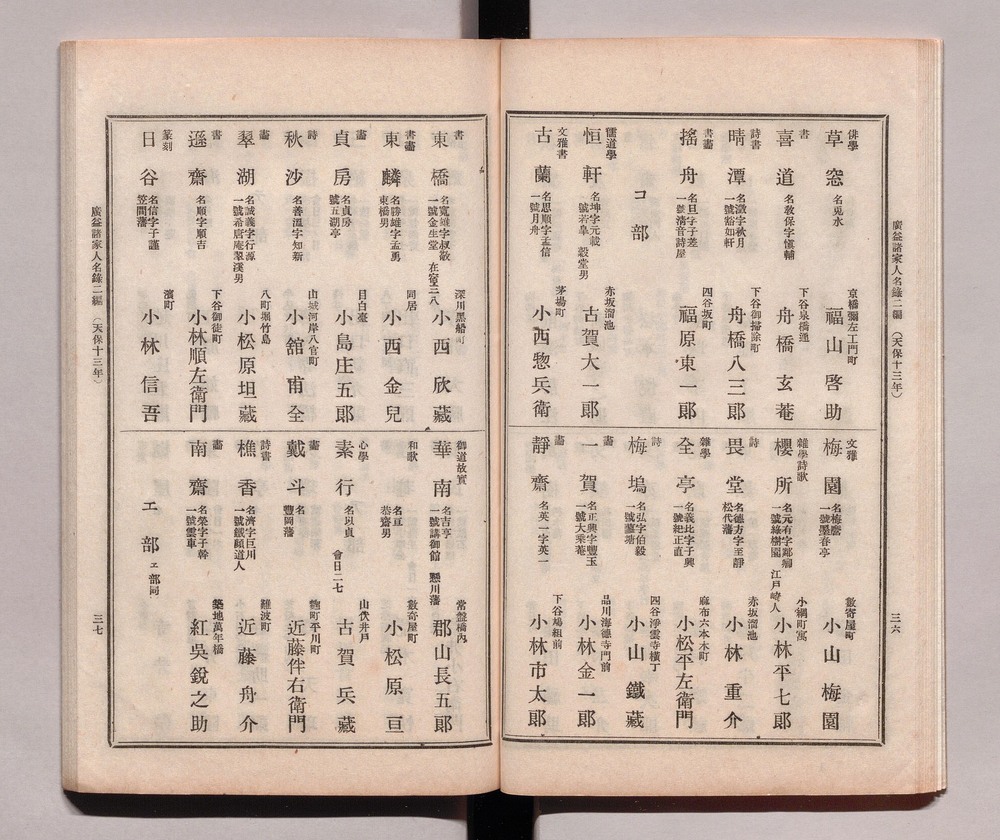 廣益諸家人名錄二編 (天保十三年)
三六
俳學
草窓 名寛水
京橋彌左工門町
福山啓助
書
喜道 名敦保字愼輔
下谷泉橋通
舟橋玄菴
詩書
晴潭 名澂字秋月
一號豁如軒
下谷御掃除町
舟橋八三郎
書畵
搖舟 名旦字子差
一號淸音詩屋
四谷坂町
福原東一郎
コ部
儒道學
恒軒 名坤字元載
號若皐 毅堂男
赤坂溜池
古賀大一郎
文雅書
古蘭 名思順字孟信
一號月舟
茅場町
小西惣兵衛
文雅
梅園 名梅麿
一號墨春亭
數寄屋町
小山梅園
雜學詩歌
櫻所 名元有字鄰卿
一號綠樹園 江戶崎人
小網町寓
小林平七郎
詩
畏堂 名德方字至靜
松代藩
赤坂溜池
小林重介
雜學
全亭 名義比字子興
一號紀正直
麻布六本木町
小松平左衛門
詩
梅塢 名弘字伯毅
一號蓽塘
四谷淨雲寺橫丁
小山鐵藏
畵
一賀 名正興字豐玉
一號大乘菴
品川海德寺門前
小林金一郎
畵
靜齋 名英一字英一
下谷鳩組前
小林市太郎
書
東橋 名寛雄字叔敬
一號金生堂 在宿三八
深川黑船町
小西欣藏
書畵
東麟 名勝雄字孟勇
東橋男
同居
小西金兒
畵
貞房 名貞房
號五湖亭
目白臺
小島庄五郎
詩
秋沙 名善溫字知新
山城河岸八官町
小舘甫全
畵
翠湖 名誠義字行源
一號希唐庵翠溪男
八町堀竹島
小松原坦藏
書
遜齋 名順字順吉
下谷御徒町
小林順左衛門
篆刻
日谷 名信字子謹
笠間藩
濱町
小林信吾
御道故實
華南 名吉亭
一號講御館 懸川藩
常盤橋內
郡山長五郎
和歌
名亘
恭齋男
數寄屋町
小松原亘
心學
素行 名以貞 會日二七
山伏井戶
古賀兵藏
畵
戴斗 名
豐岡藩
麴町平川町
近藤伴右衛門
詩書
樵香 名濟字巨川
一號鐵顏道人
難波町
近藤舟介
畵
南齋 名榮字子幹
一號雲車
築地萬年橋
紅吳銳之助
エ部 ヱ部同
廣益諸家人名錄二編 (天保十三年)
三七